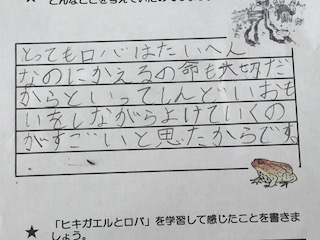 とってもロバはたいへん
なのにかえるの命も大切だ
からといってしんどいおも
いをしながらよけていくの
がすごいと思たからです。
★ 「ヒキガエルとロバ」を学習して感じたことを書きま
しょう。